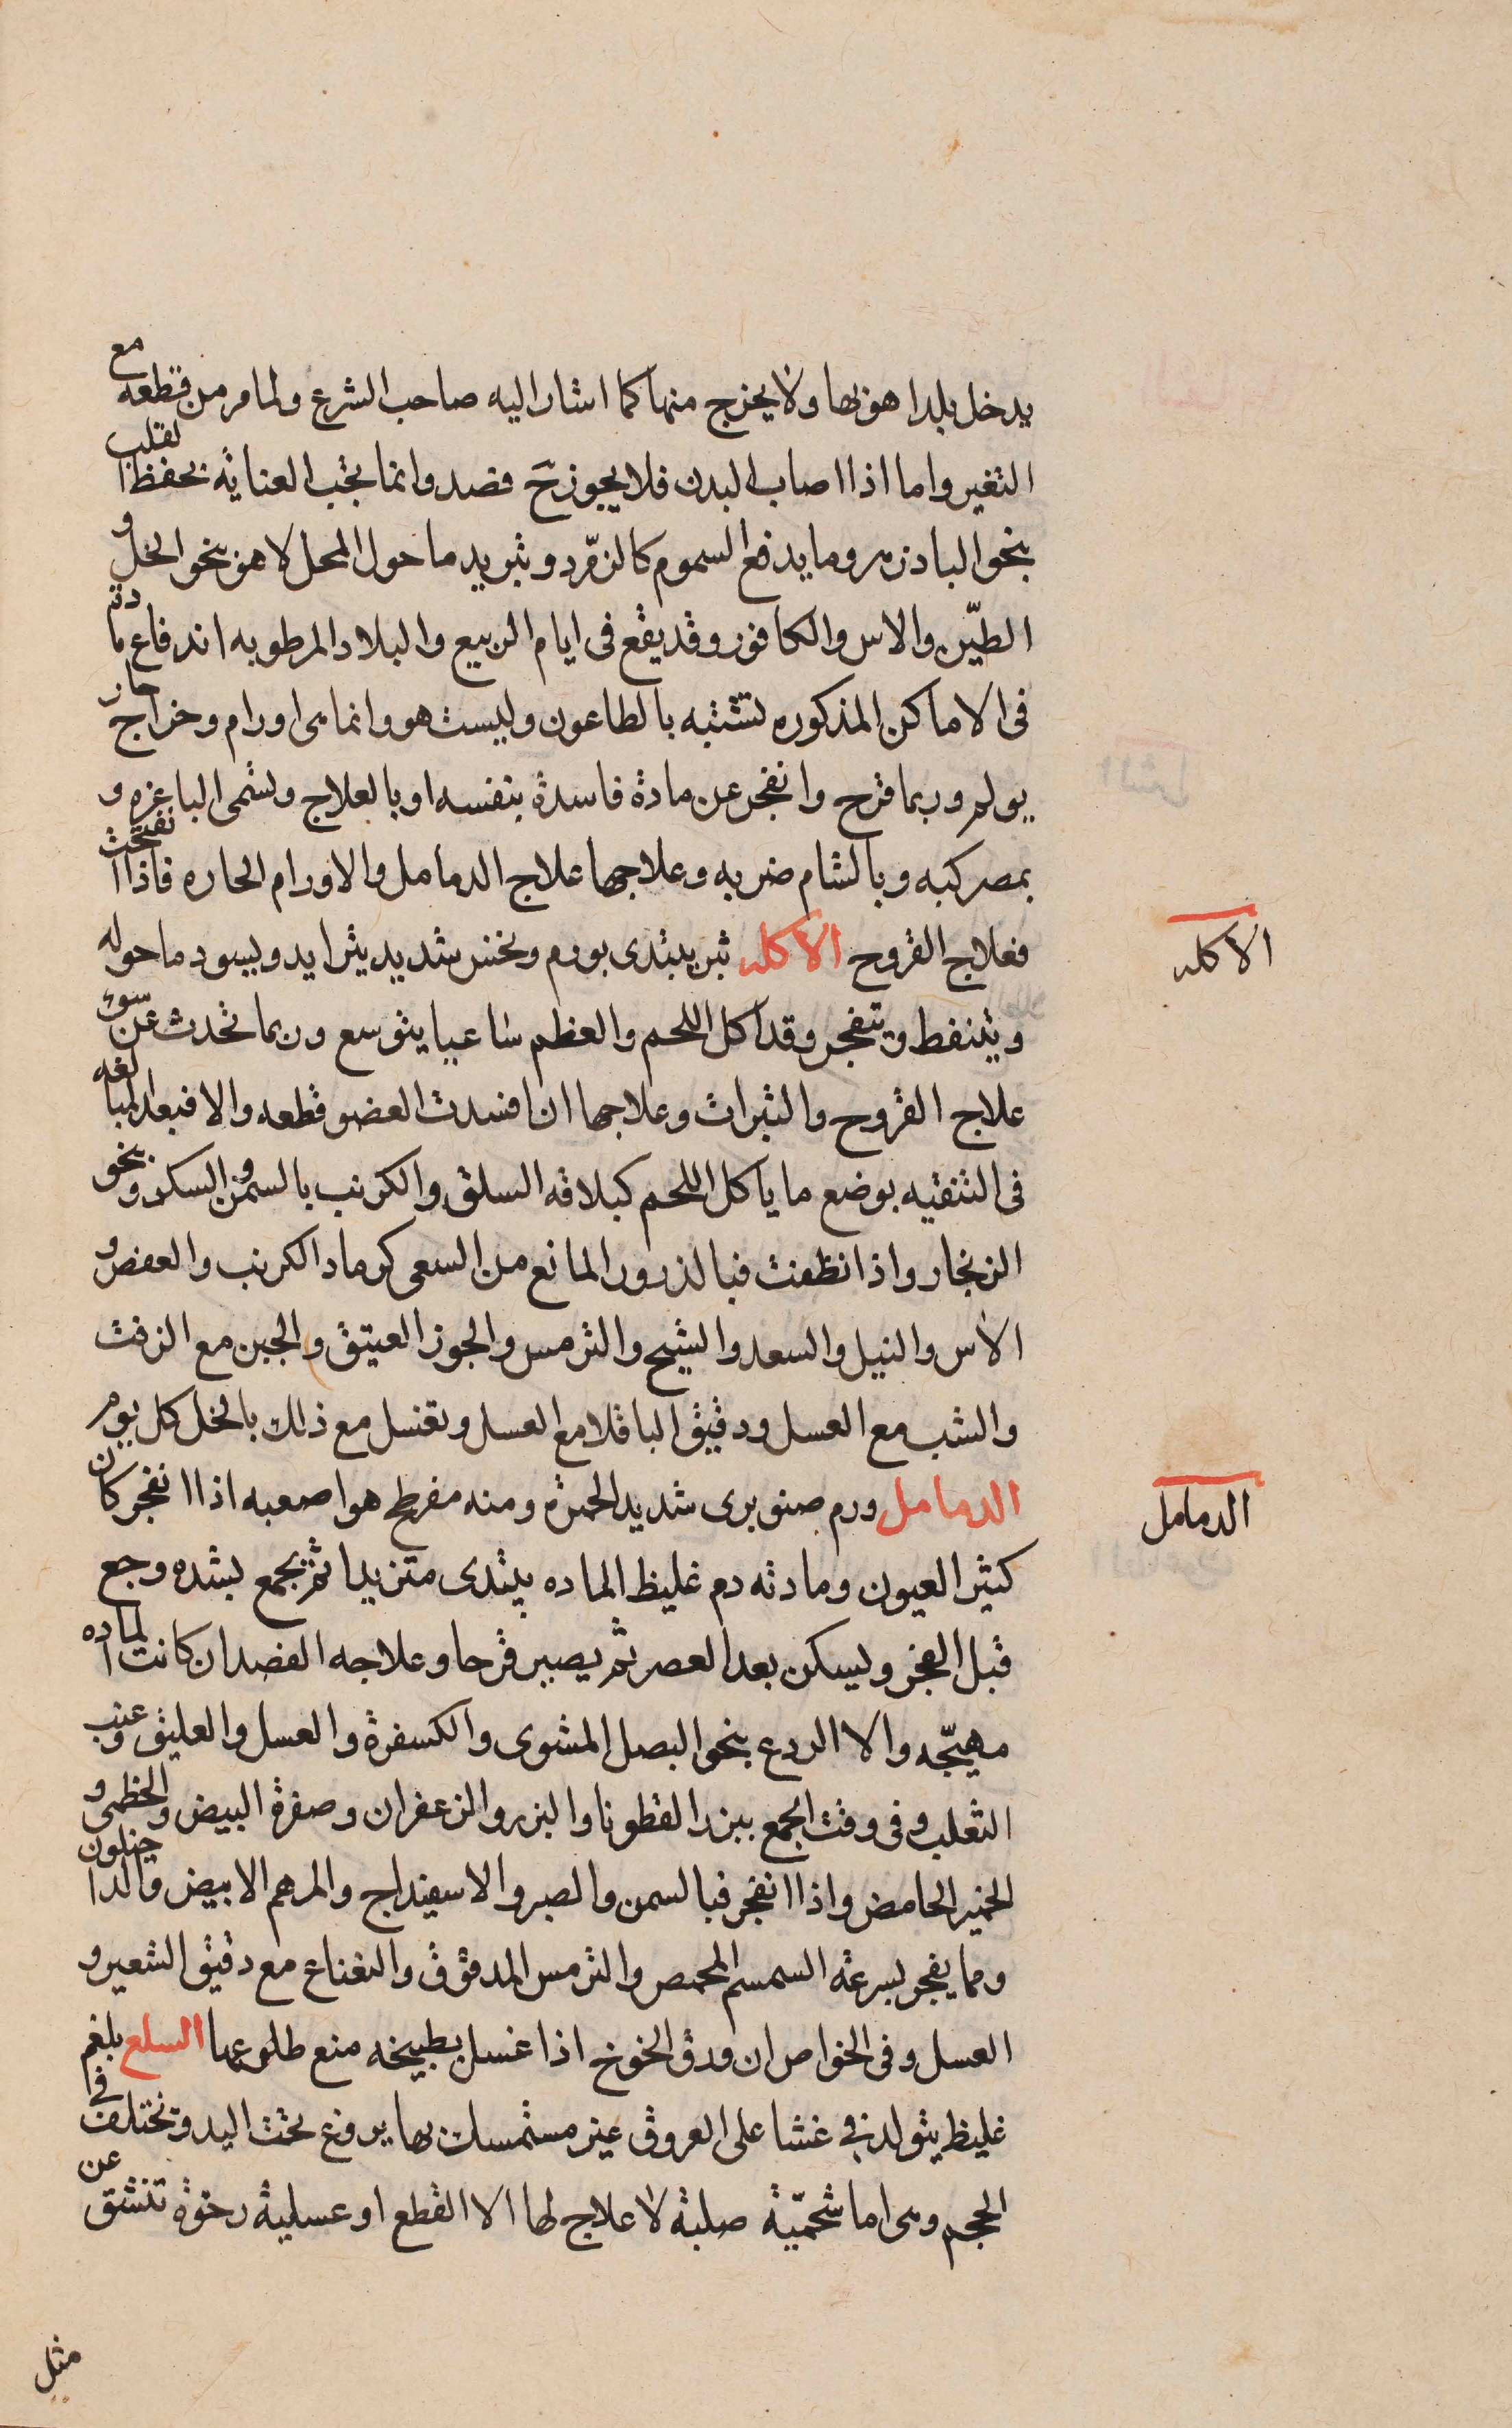 يدخل بلدا هو بها ولا يخرج منها كما اشار اليه صاحب الشرع ولما مر من قطعه مع
التغير واما اذا اصاب البدن فلا يجوز ح فصد وانما يجب العناية بحفظ القلب
بنحو البادزهر وما يدفع السموم كالزمرد وتبريد ما حول المحل لا هو بنحو الخل و
الطين والاس والكافور وقد يقع فى ايام الربيع والبلاد المرطوبه اندفاع مادة
فى الاماكن المذكوره تشتبه بالطاعون وليست هو وانما هى اورام وخراج حار
يولم وربما قرح وانفجر عن مادة فاسدة بنفسه او بالعلاج وتسمى الباغزه و
بمصر كبه وبالشام ضربه وعلاجها علاج الدمامل والاورام الحاره فاذا انفتحت
فعلاج القروح الاكله بثر يبتدى بورم ونخس شديد يتزايد ويسود ما حوله
ويتنفط وينفجر وقد اكل اللحم والعظم ساعيا يتوسع وربما تحدث عن سوء
علاج القروح والبثرات وعلاجها ان افسدت العضو قطعه والا فبعد المبالغه
فى التنقيه بوضع ما ياكل اللحم كبلاقه السلق والكرنب بالسمن والسكر ونحو
الزنجار واذا نظفت فبالذرور المانع من السعى كرماد الكرنب والعفص و
الاس والنيل والسعد والشيح والترمس والجوز العتيق والجبن مع الزفت
والشب مع العسل ودقيق الباقلا مع العسل وتغسل مع ذلك بالخل كل يوم
الدمامل ورم صنوبرى شديد الحمرة ومنه مفرطح هو اصعبه اذا انفجر كان
كثير العيون ومادته دم غليظ الماده يبتدى متزيدا ثم يجمع بشده وجع
قبل الفجر ويسكن بعد العصر ثم يصير قرحا وعلاجه الفصد ان كانت الماده
مهيجه والا الردع بنحو البصل المشوى والكسفرة والعسل والعليق وعنب
الثعلب وفى وقت الجمع ببزر القطونا والبزر والزعفران وصفرة البيض والخطمى و
الخمير الحامض واذا انفجر فبالسمن والصبر والاسفيداج والمرهم الابيض والداخيلون
ومما يفجر بسرعة السمسم المحمص والترمس المدقوق والنعناع مع دقيق الشعير و
العسل وفى الخواص ان ورق الخوخ اذا غسل بطبيخه منع طلوعها السلع بلغم
غليظ يتولد فى غشا على العروق غير مستمسك بها يروغ تحت اليد وتختلف فى
الحجم وهى اما شحمية صلبة لا علاج لها الا القطع او عسلية رخوة تنشق عن
مثل
الاكله
الدمامل